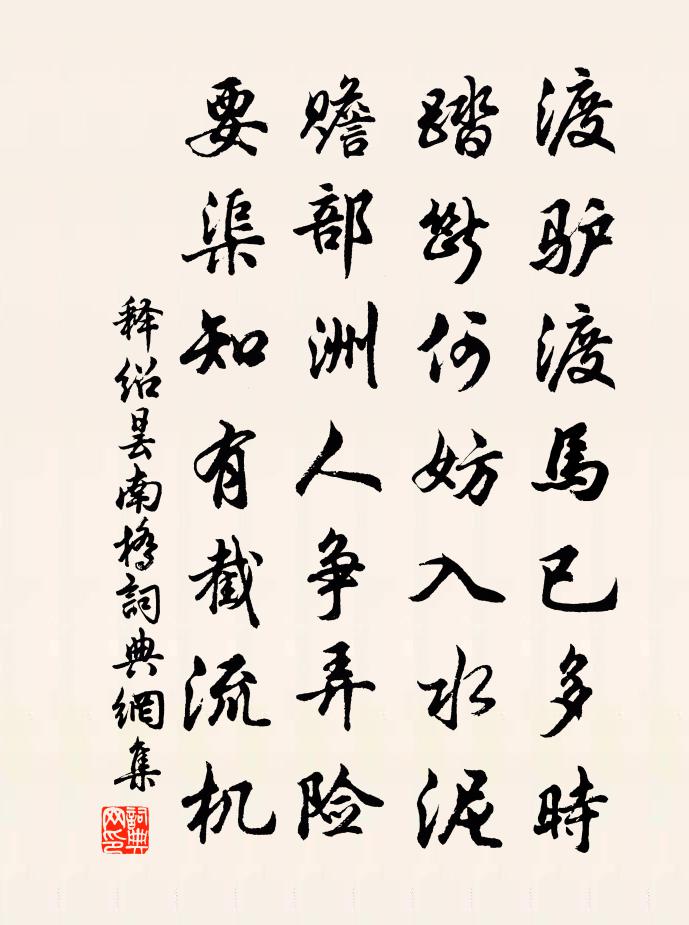 渡驴渡馬已多時
踏断何妨入水泥
赡部洲人争弄险
要渠知有截流机
释绍昙南橋詞典網集
詞典